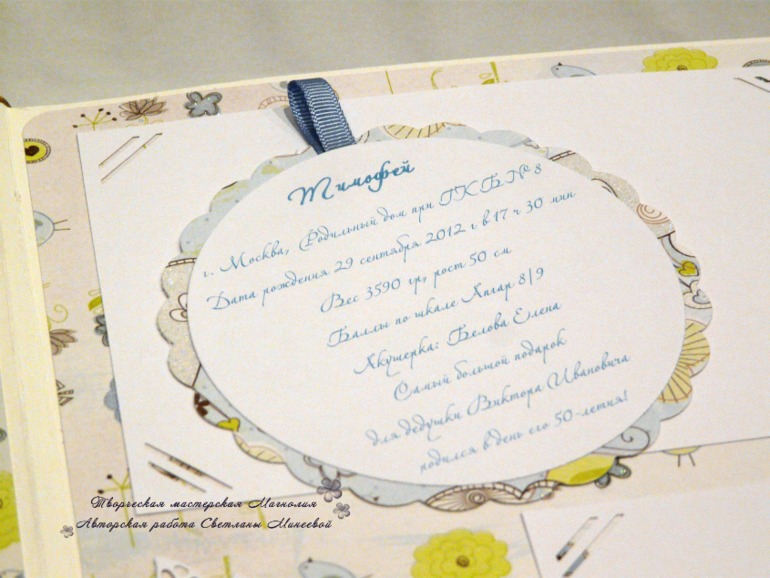 Тимофей
г. Москва, Родильный дом при ГКБ № 8
Дата рождения 29 сентября 2012 г. в 17 ч 30 мин
Вес 3590 гр, рост 50 см
Баллы по шкале Апгар 8/9
Акушерка: Белова Елена
Самый большой подарок
для дедушки Виктора Ивановича
родился в день его 50-летия!
Творческая мастерская Магнолия
Авторская работа Светланы Минеевой